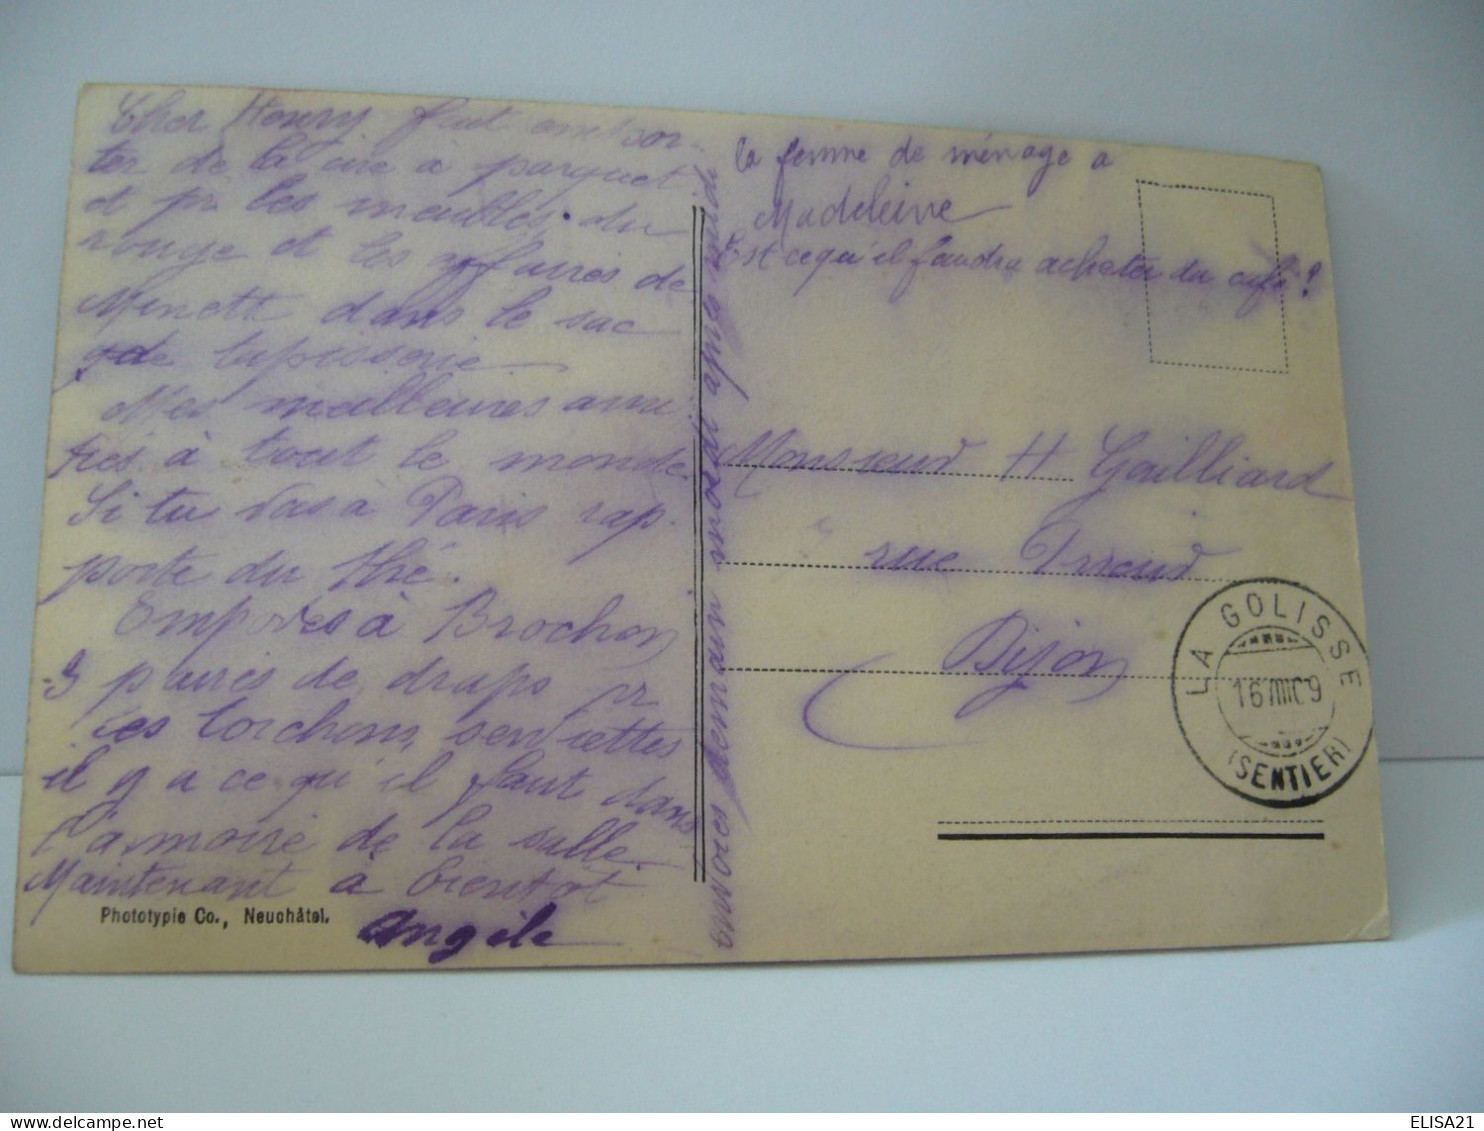 Cher Henry faut empor-
ter de la cire à parquet
et pr les meubles. du
rouge et les affaires de
Minett dans le sac
de tapisserie
Mes meilleures ami
tiés à tout le monde.
Si tu vas à Paris rap
porte du thé.
à Brochon
3 paires de draps pr
les torchons, serviettes
il y a ce qu'il faut dans
l'armoire de la salle.
Maintenant à bientot
Angèle
Phototypie Co., Neuchâtel.
envoies demain mardi après midi
la femme de ménage a
Madeleine
Est ce qu'il faudra acheter du café?
Monsieur H Gailliard
rue
Dijon
LA GOLISSE
16 VIII 09
(SENTIER)
ELISA21